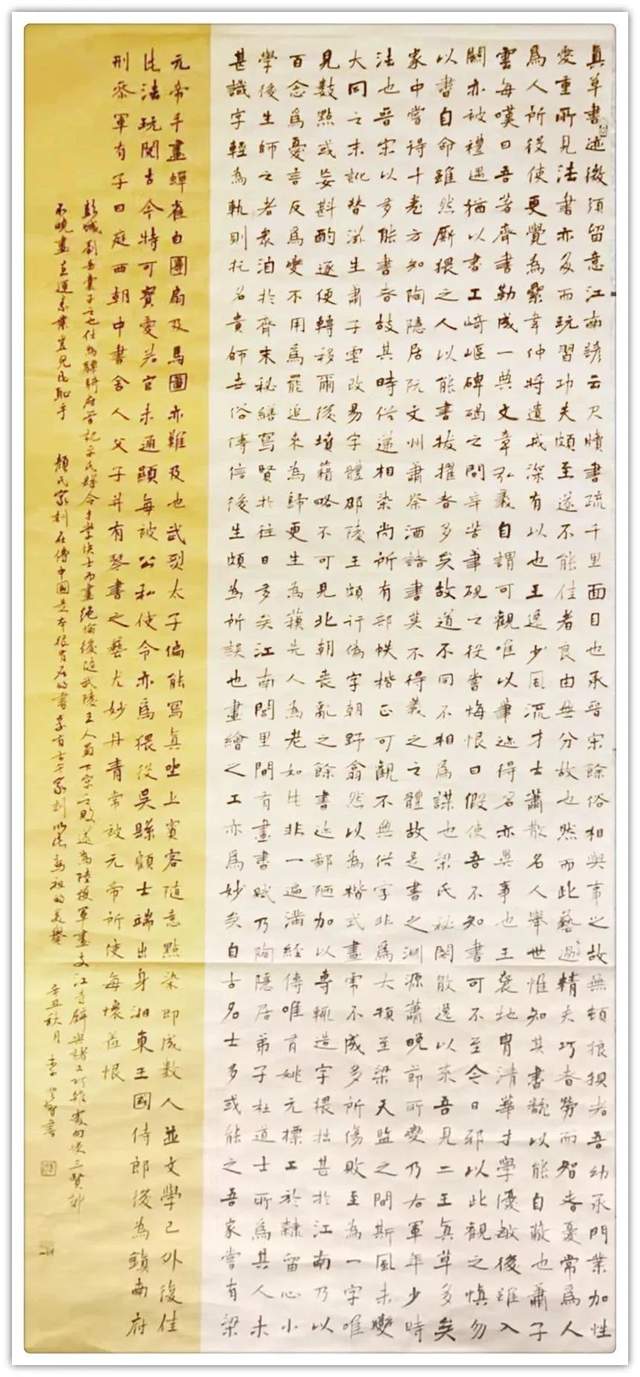 真草書迹微須留意江南諺云尺牘書疏千里面目也承晉宋餘俗相與事之故無頓狼狽者吾幼承門業加性
愛重所見法書亦多而玩習功夫頗至遂不能佳者良由無分故也然而此藝過精夫巧者勞而智者憂常為人
為人所役使更覺為累韋仲將遺戒深有以也王逸少風流才士蕭散名人舉世惟知其書翻以能自蔽也蕭子
雲每嘆曰吾著齊書勒成一典文章弘義自謂可觀唯以筆迹得名亦異事也王褒地胄清華才學優敏後雖入
關亦被禮遇猶以書工崎嶇碑碣之間辛苦筆硯之役嘗悔恨曰假使吾不知書可不至今日邪以此觀之慎勿
以書自命雖然廝猥之人以能書拔擢者多矣故道不同不相為謀也梁氏秘閣散逸以來吾見二王真草多矣
家中嘗得十卷方知陶隱居阮交州蕭祭酒諸書莫不得羲之之體故是書之淵源蕭晚節所變乃右軍年少時
法也晉宋以多能書者故其時俗遞相染尚所有部帙楷正可觀不無俗字非為大損至梁天監之間斯風未變
大同之末訛替滋生蕭子雲改易字體邵陵王頗行偽字朝野翕然以為楷式畫虎不成多所傷敗至為一字唯
見數點或妄斟酌逐便轉移爾後墳籍略不可見北朝喪亂之餘書迹鄙陋加以專輒造字猥拙甚於江南乃以
百念為憂言反為變不用為罷追來為歸更生為蘇先人為老如此非一遍滿經傳唯有姚元標工於隸留心小
學後生師之者眾洎於齊末秘繕寫賢於往日多矣江南閭里間有畫書賦乃陶隱居弟子杜道士所為其人未
甚識字輕為軌則托名貴師世俗傳信後生頗為所誤也畫繪之工亦為妙矣自古名士多或能之吾家嘗有梁
元帝手畫蟬雀白團扇及馬圖亦難及也武烈太子偏能寫真坐上賓客隨意點染即成數人並文學已外復佳
此法玩閱古今特可寶愛若官未通顯每被公私使令亦為猥役吳縣顧士端出身湘東王國侍郎後為鎮南府
刑參軍有子曰庭西朝中書舍人父子并有琴書之藝尤妙丹青常被元帝所使每懷羞恨
彭城劉岳橐之子也仕為驃騎府管記平氏縣令才學快士而畫絕倫後隨武陵王入蜀下牢之敗遂為陸護軍畫支江寺壁與諸工巧雜處向使三賢都
不曉畫直運素業豈見此恥乎 顏氏家訓在傳中國是
辛丑秋月 書